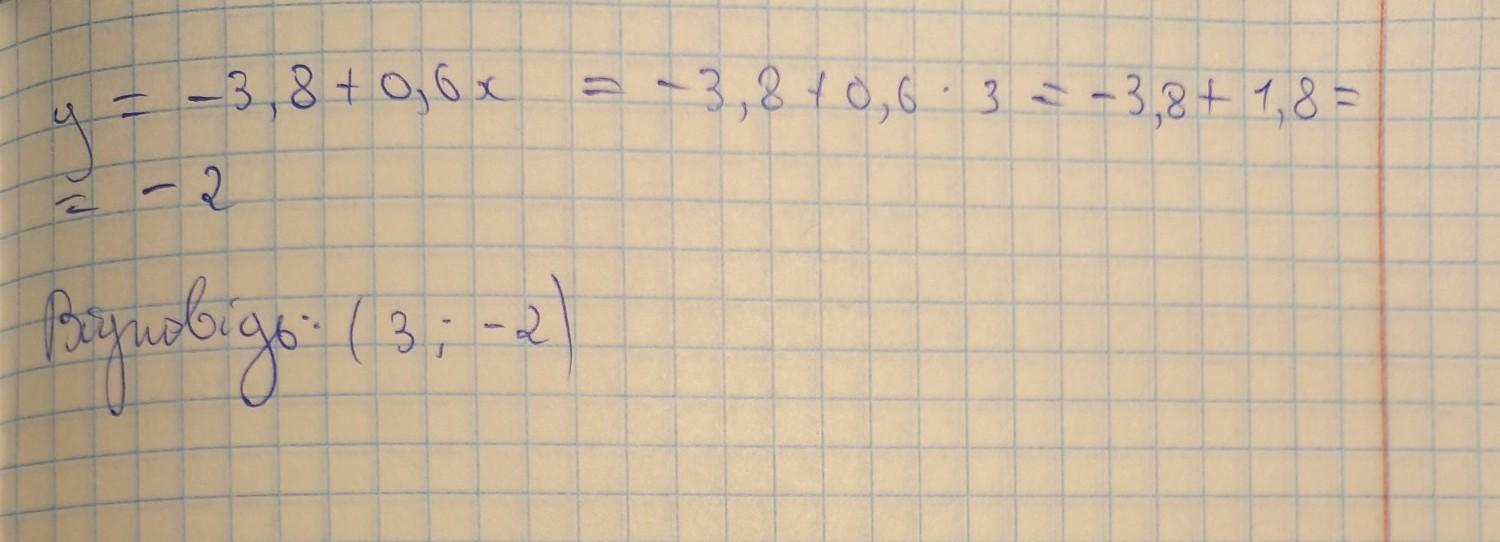 y = -3,8 + 0,6x = -3,8 + 0,6 · 3 = -3,8 + 1,8 =
= -2
Відповідь: (3; -2)